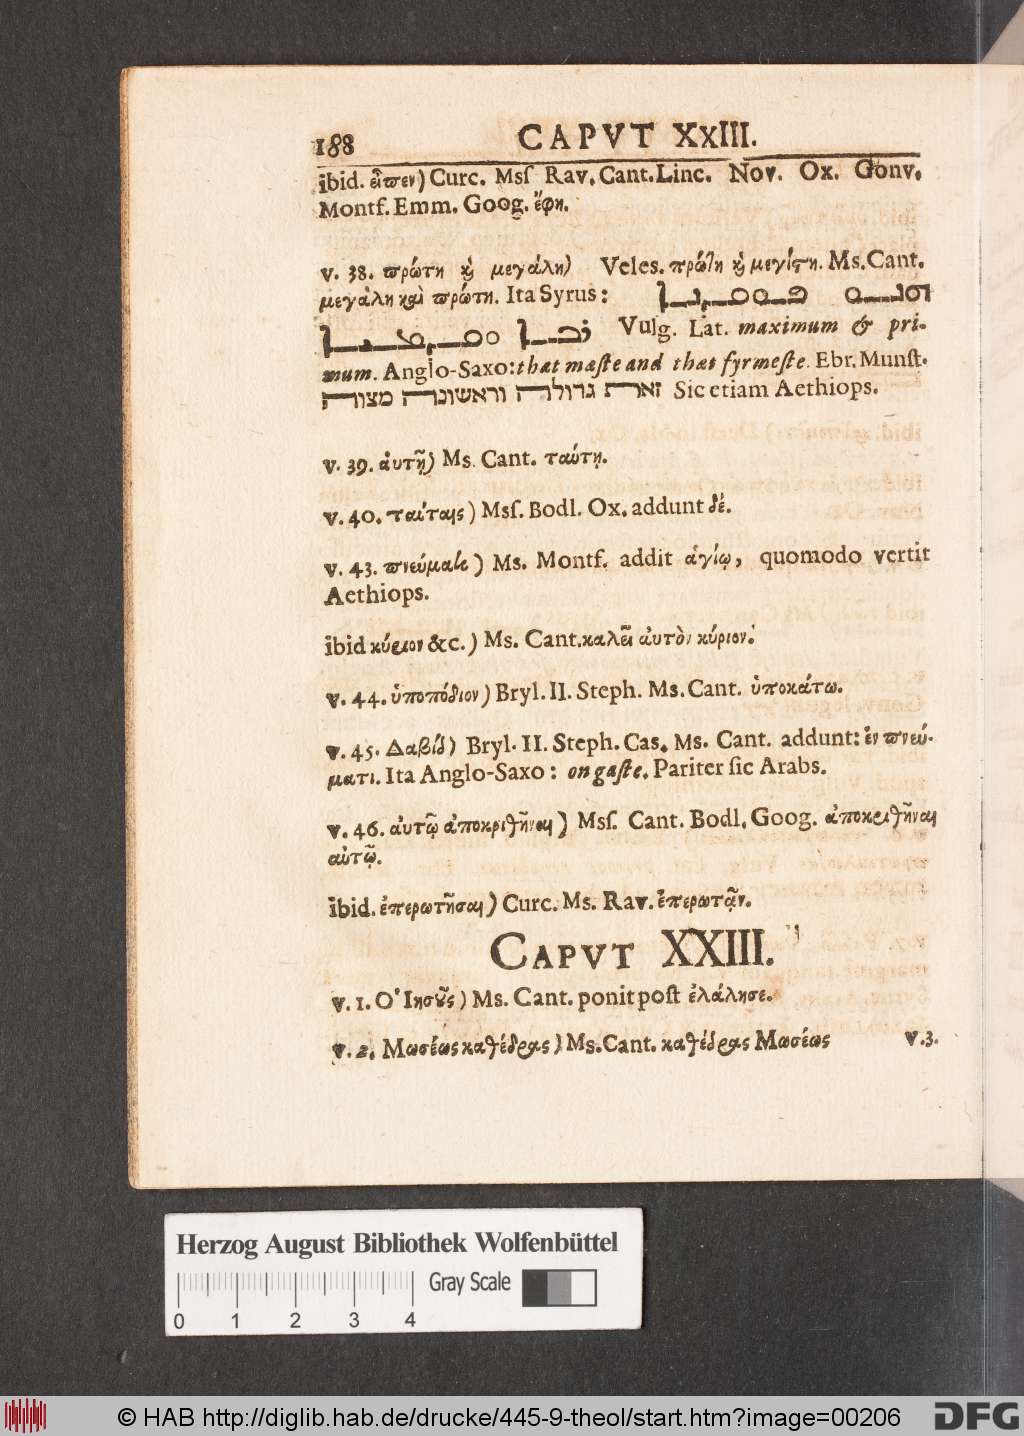 188 CAPVT XXIII.
ibid. εἶπεν) Curc. Msſ Rav. Cant. Linc. Nov. Ox. Gonv.
Montf. Emm. Goog. ἔφη.
v. 38. πρώτη ϗ μεγάλη) Veles. πρώτη ϗ μεγίστη. Ms. Cant.
μεγάλη καὶ πρώτη. Ita Syrus:
Vulg. Lat. maximum & pri-
mum. Anglo-Saxo: that mæſte and thæt fyrmeſte. Ebr. Munſt.
זאת גדולה וראשונה מצורה Sic etiam Aethiops.
v. 39. ἀυτῇ) Ms. Cant. ταύτῃ.
v. 40. ταύταις) Msſ. Bodl. Ox. addunt δέ.
v. 43. πνεύματι) Ms. Montf. addit ἁγίῳ, quomodo vertit
Aethiops.
ibid κύριον &c.) Ms. Cant. καλεῖ ἀυτὸν κύριον.
v. 44. ὑποπόδιον) Bryl. II. Steph. Ms. Cant. ὑποκάτω.
v. 45. Δαβίδ) Bryl. II. Steph. Caſ. Ms. Cant. addunt: ἐν πνεύ-
ματι. Ita Anglo-Saxo: on gaſte. Pariter ſic Arabs.
v. 46. ἀυτῷ ἀποκριθῆναι) Msſ. Cant. Bodl. Goog. ἀποκριθῆναι
αὐτῷ.
ibid. ἐπερωτῆσαι) Curc. Ms. Rav. ἐπερωτᾷν.
CAPVT XXIII.
v. 1. Ο Ἰησοῦς) Ms. Cant. ponit poſt ἐλάλησε.
v. 2. Μωσέως καθέδρας) Ms. Cant. καθέδρας Μωσέως
v. 3.
Herzog August Bibliothek Wolfenbüttel
Gray Scale
0 1 2 3 4
© HAB http://diglib.hab.de/drucke/445-9-theol/start.htm?image=00206
DFG